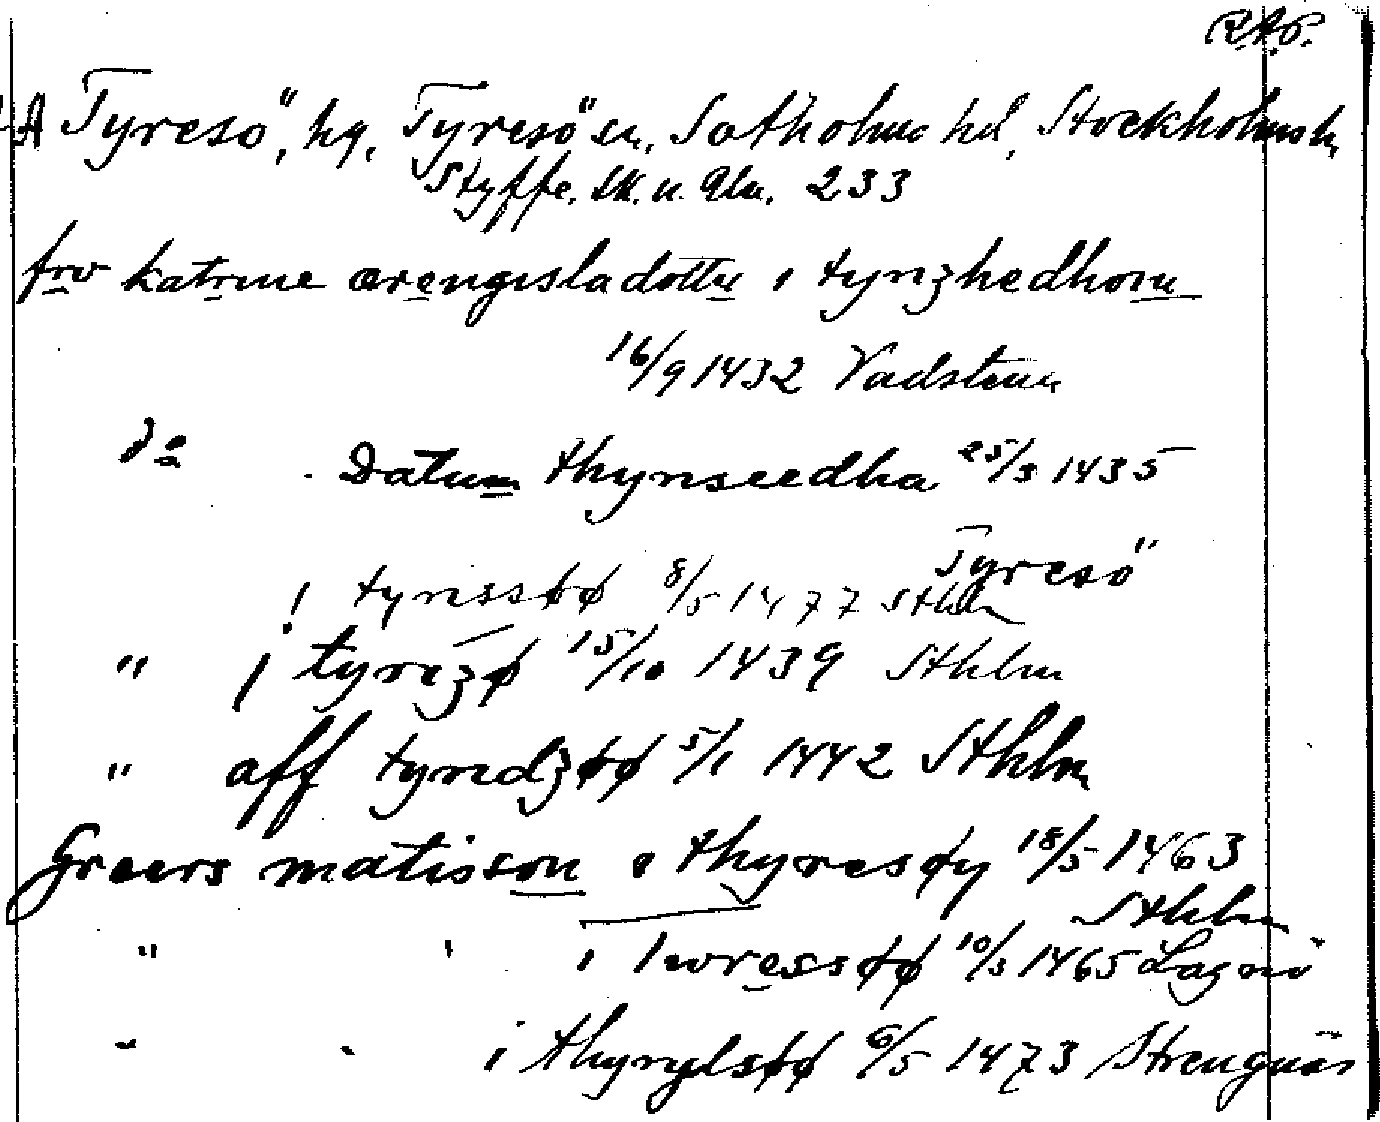 R.A.P.
A Tyresö, hg, Tyresö sn, Sotholms hd, Stockholms l.
Styffe. Sk. u. Un. 233
frv katrine ærengisladotter i tyrizhedhom
16/9 1432 Vadstena
do Datum thynseedha 25/3 1435
Tyresö
i tyrissøø 8/5 1477 Sthlm
" j tyrezø 15/10 1439 Sthlm
" aff tyredzøø 5/1 1442 Sthlm
Greers matisson i thyresøy 18/5 1463
Sthlm
" " i twressøø 10/3 1465 Lagnö
" " i thyrylsøø 6/5 1473 Strengnäs